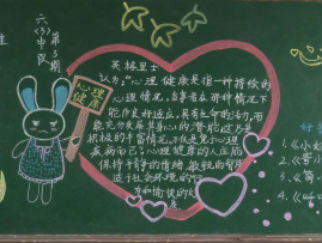 六(3)中队
第3期
心理
健康
英格里士
认为:“心理健康是指一种持续的
心理情况,当事者在那种情况下
能作良好适应,具有生命的活力,而
能充分发展其身心的潜能,这乃是
积极的丰富情况,不仅是免于心理
疾病而已。”心理健康的人应
保持平静的情绪,敏锐的智能
适于社会环境的行
为和愉快的
《小
《
《简
《叫